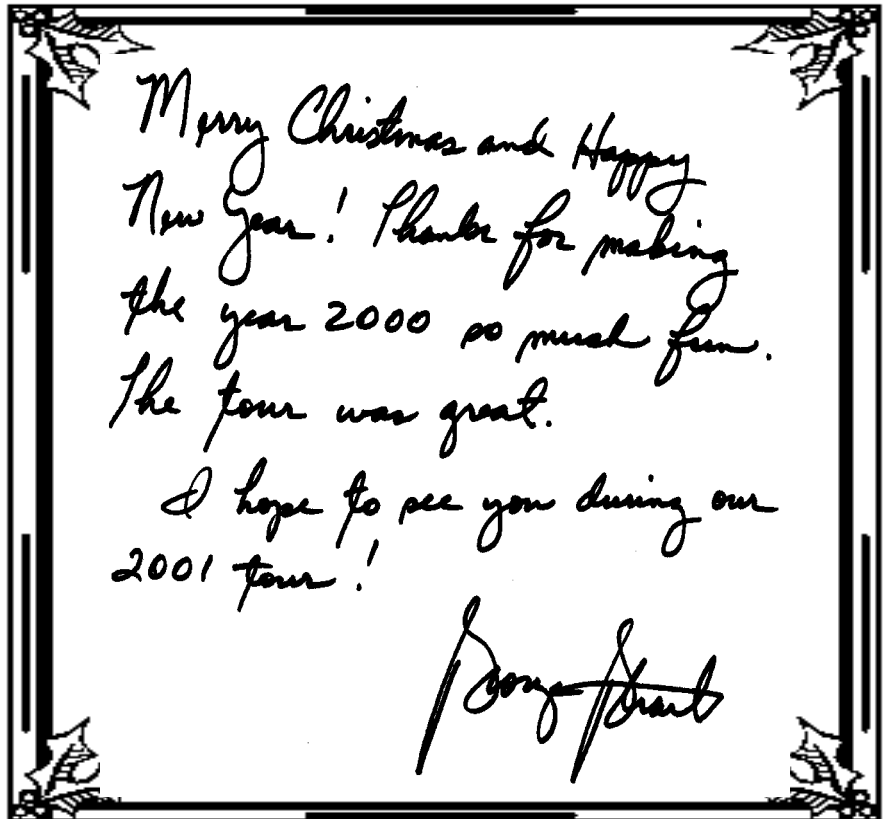 Merry Christmas and Happy
New Year! Thanks for making
the year 2000 so much fun.
The tour was great.
I hope to see you during our
2001 tour!
George Strait